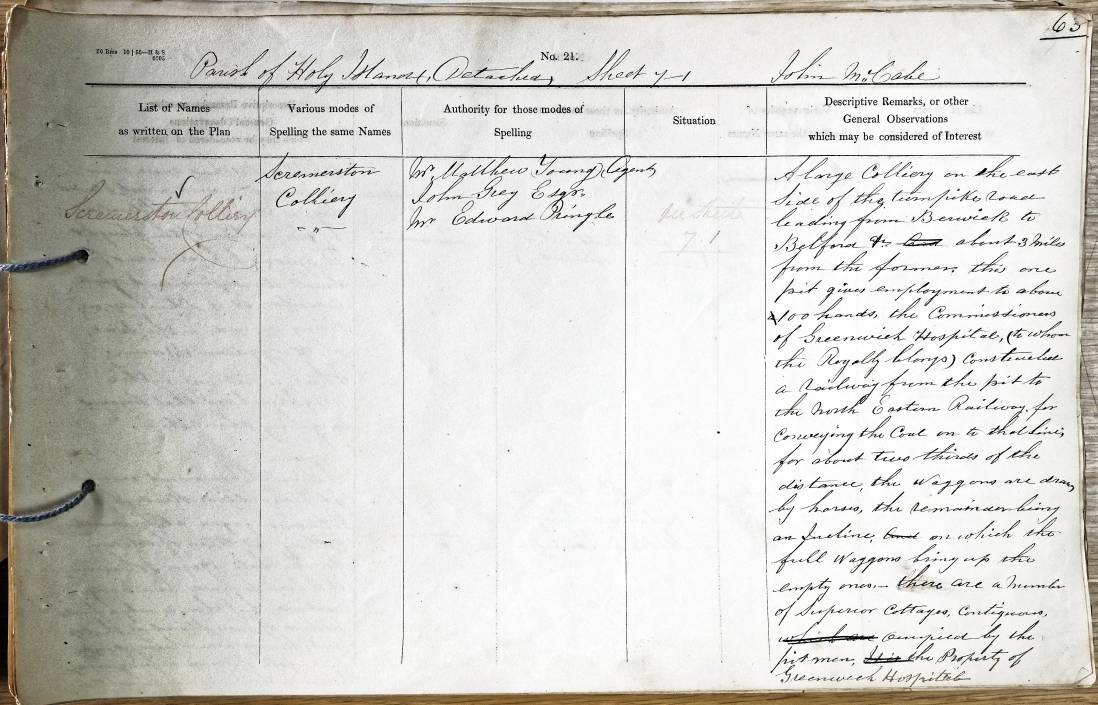 63
No. 21.
Parish of Holy Island, Detached, Sheet 7-1 John McCabe
List of Names
as written on the Plan
Various modes of
Spelling the same Names
Authority for those modes of
Spelling
Situation
Descriptive Remarks, or other
General Observations
which may be considered of Interest
Scremerston Colliery
Scremerston
Colliery
- " -
Mr. Matthew Young, Agent
John Grey Esqr.
Mr Edward Pringle
on Sheet
7.1
A large Colliery on the east
Side of the turnpike road
leading from Berwick to
Belford &c. and about 3 Miles
from the former, this one
pit gives employment to above
100 hands, the Commissioners
of Greenwich Hospital, (to whom
the Royalty blongs) Constructed
a railway from the pit to
the North Eastern Railway, for
Conveying the Coal on to that line,
for about two thirds of the
distance, the Waggons are drawn
by horses, the remainder being
an Incline, and on which the
full Waggons bring up the
empty ones.— there are a Number
of Superior Cottages, Contiguous,
which are occupied by the
pitmen, It is the Property of
Greenwich Hospital